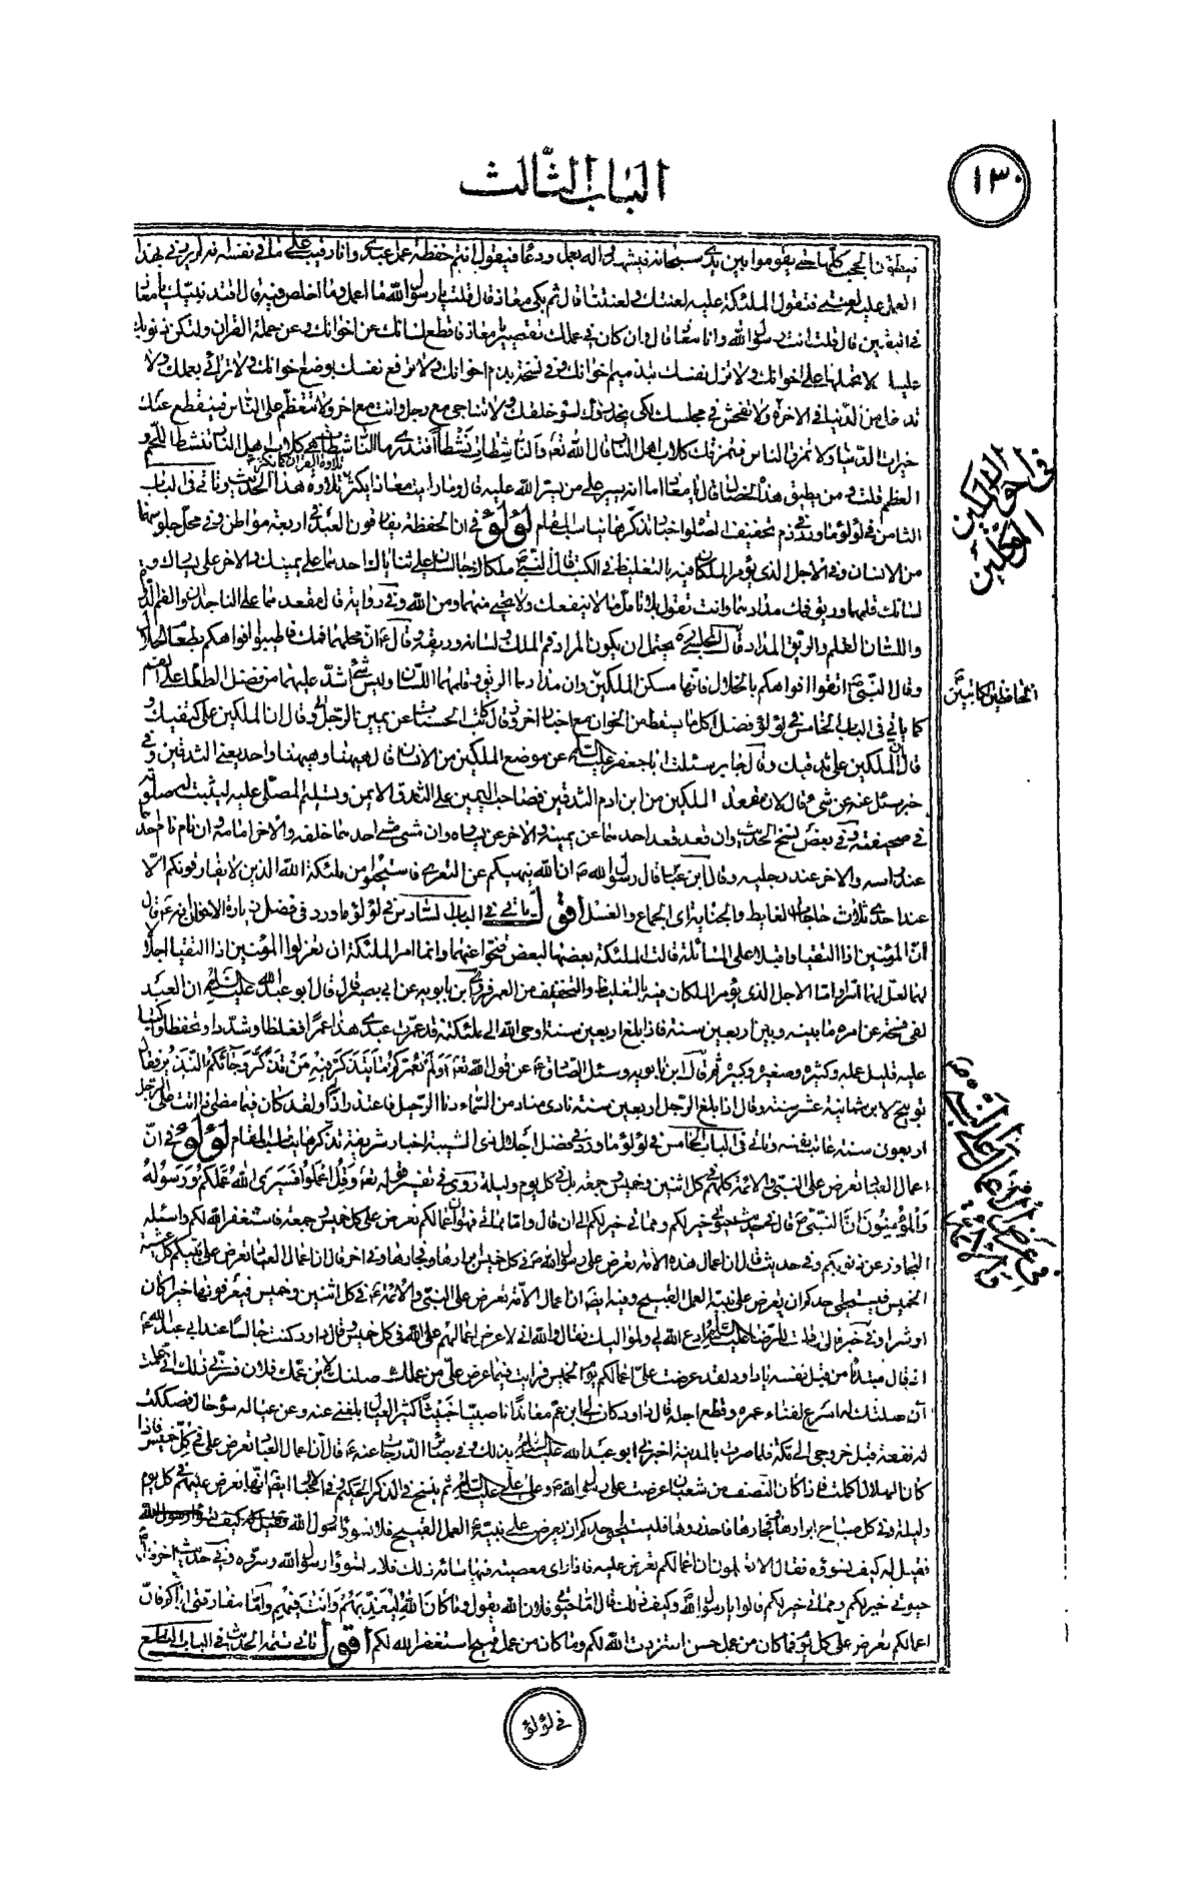 ١٣٠
الباب الثالث
العمل عليه لعنتي فتقول الملئكة عليه لعنتك ولعنتنا قال ثم بكى معاذ قال قلت يا رسول الله ما اعمل وما اخلص فيه قال اقتد بنبيك يا معاذ
في اليقين قال قلت انت رسول الله وانا معاذ قال وان كان في عملك تقصير يا معاذ فاقطع لسانك عن اخوانك وعن حملة القران ولتكن ذنوبك
عليك لا تحملها على اخوانك ولا تزك نفسك بتذميم اخوانك ولا ترفع نفسك بوضع اخوانك ولا تراء بعملك ولا
تدخل من الدنيا في الاخرة ولا تفحش في مجلسك لكى يحذروك لسوء خلقك ولا تناجى مع رجل وانت مع اخر ولا تتعظم على الناس فينقطع عنك
خيرات الدنيا ولا تمزق الناس فتمزقك كلاب اهل النار قال الله تع والناشطات نشطا افتدرى ما الناشطات هى كلاب اهل النار تنشط اللحم و
العظم قلت ومن يطيق هذه الخصال قال يا معاذ اما انه يسير على من يسر الله عليه قال وما رايت معاذا يكثر تلاوة القران كما يكثر تلاوة هذا الحديث وتاتى في الباب
الثامن في لؤلؤ ما ورد في ذم تخفيف الصلوة اخبار تذكرها يناسب المقام لؤلؤ في ان الحفظة يفارقون العبد في اربعة مواطن وفي محل جلوسهما
من الانسان وفي الاجل الذى يؤمر الملكان فيه بالتغليظ في الكتب قال النبى ص ملكان جالسان على ثناياك احدهما على يمينك والاخر على يسارك و
لسانك قلمهما وريقك مدادهما وانت تقول بلا تامل ما لا ينفعك ولا يستحيى منهما ومن الله وفي رواية قال مقعدهما على الناجذ
واللسان القلم والريق المداد قال المجلسى ره يحتمل ان يكون المراد فم الملك ولسانه وريقه
وقال النبى ص انقوا افواهكم بالخلال فانها مسكن الملكين وان مدادهما الريق وقلمهما اللسان وليس شىء اشد عليهما من فضل الطعام على الفم
كما ياتى في الباب الخامس في لؤلؤ فضل اكل ما يسقط من الخوان مع اخبار اخر وقال كاتب الحسنات عن يمين الرجل وقال ان الملكين على كتفيك و
قال ان الملكين على شدقيك وقال جابر سئلت ابا جعفر عليه السلم عن موضع الملكين من الانسان قال ههنا وههنا واحد يعنى الشدقين وفي
خبر سئل عنه عن شىء قال لان مقعد الملكين من ابن ادم الشدقين فصاحب اليمين على الشدق الايمن ويسلم المصلى عليه ليثبت له صلوته
في صحيفته وفي بعض نسخ الحديث وان قعد قعد احدهما عن يمينه والاخر عن يساره وان مشى مشى احدهما خلفه والاخر امامه وان نام نام احدهما
عند راسه والاخر عند رجليه وقال ابن عباس قال رسول الله ص ان الله ينهيكم عن التعرى فاستحيوا من ملئكة الله الذين لا يفارقونكم الا
عند احدى ثلاث حاجات الغايط والجنابة اى الجماع والغسل اقول ياتى في الباب السادس في لؤلؤ ما ورد في فضل زيارة الاخوان انه ع قال
ان المؤمنين اذا التقيا واقبلا على المسائلة قالت الملئكة بعضها لبعض تنحوا عنهما وانما امر الملئكة ان تعتزلوا المؤمنين اذا التقيا اجلالا
لهما لعل لهما اسرارا اما الاجل الذى يؤمر الملكان فيه بالتغليظ والتخفيف من العمر فروى ابن بابويه عن ابى بصير قال قال ابو عبد الله عليه السلم ان العبد
لفى فسحة من امره ما بينه وبين اربعين سنة فاذا بلغ اربعين سنة اوحى الله الى ملئكته قد عمرت عبدى هذا عمرا فغلظا وشددا وتحفظا واكتبا
عليه قليل عمله وكثيره وصغيره وكبيره ثم قال ابن بابويه وسئل الصادق ع عن قول الله تع او لم نعمركم ما يتذكر فيه من تذكر وجائكم النذير فقال
توبيخ لابن ثمانية عشر سنة وقال اذا بلغ الرجل اربعين سنة نادى مناد من السماء دنا الرحيل فاعد زادا ولقد كان فيما مضى اذا اتت على الرجل
اربعون سنة حاسب نفسه وتاتى في الباب الخامس في لؤلؤ ما ورد في فضل اجلال ذى الشيبة اخبار شريفة تذكرها يناسب المقام لؤلؤ في ان
اعمال العباد تعرض على النبى والائمة كلهم في كل اثنين وخميس وجمعة بل في كل يوم وليلة روى في تفسير قوله تع وقل اعملوا فسيرى الله عملكم ورسوله
والمؤمنون ان النبى ص قال في حديث حيوتى خير لكم ومماتى خير لكم الى ان قال واما مماتى فهو ان اعمالكم تعرض على كل خميس وجمعة فاستغفر الله لكم واسئله
التجاوز عن ذنوبكم وفي حديث قال ان اعمال هذه الامة تعرض على رسول الله ص في كل خميس ابرارها وفجارها وفي اخر قال ان اعمال العباد تعرض على نبيكم كل عشية
الخميس فليستحى احدكم ان يعرض على نبيه العمل القبيح وفيه ايضا ان اعمال الامة تعرض على النبى والائمة ع في كل اثنين وخميس فيعرفونها خيرا كان
او شرا وفي خبر قال قلت للرضا عليه السلم ادع الله لى ولمواليك فقال والله انى لاعرض اعمالهم على الله في كل خميس وقال داود كنت جالسا عند ابى عبد الله ع
اذ قال مبتدئا من قبل نفسه يا داود لقد عرضت على اعمالكم يوم الخميس فرايت فيما عرض على من عملك صلتك لابن عمك فلان فسرنى ذلك انى علمت
ان صلتك له اسرع لفناء عمره وقطع اجله قال داود كان لى ابن عم معاندا ناصبيا خبيثا كثير العيال بلغنى عنه وعن عياله سوء حال فصككت
له نفقة قبل خروجى الى مكة فلما صرت بالمدينة اخبرنى ابو عبد الله عليه السلم بذلك وفي بصائر الدرجات عنه ع قال ان اعمال العباد تعرض على في كل خميس فاذا
كان الهلال اكملت فاذا كان النصف من شعبان عرضت على رسول الله ص وعلى على عليه السلم ثم ينسخ في الذكر الحكيم وفي الاخبار ايضا انها تعرض عليهم في كل يوم
وليلة وفي كل صباح ابرارها وفجارها فاحذروها فليستحى احدكم ان يعرض على نبيه ع العمل القبيح فلا تسوؤا رسول الله
فقيل له كيف نسوؤه فقال اما تعلمون ان اعمالكم تعرض عليه فاذا راى معصية فيها سائه ذلك فلا تسوؤا رسول الله وسروه وفي حديث اخر قال
حيوتى خير لكم ومماتى خير لكم قالوا يا رسول الله وكيف ذلك قال اما حيوتى فلان الله يقول وما كان الله ليعذبهم وانت فيهم واما مفارقتى اياكم فان
اعمالكم تعرض على كل يوم فما كان من عمل حسن استزدت الله لكم وما كان من عمل قبيح استغفر الله لكم اقول تاتى تتمة الحديث في الباب السابع
في احوال الملكين
الحافظين الكاتبين
في لؤلؤ